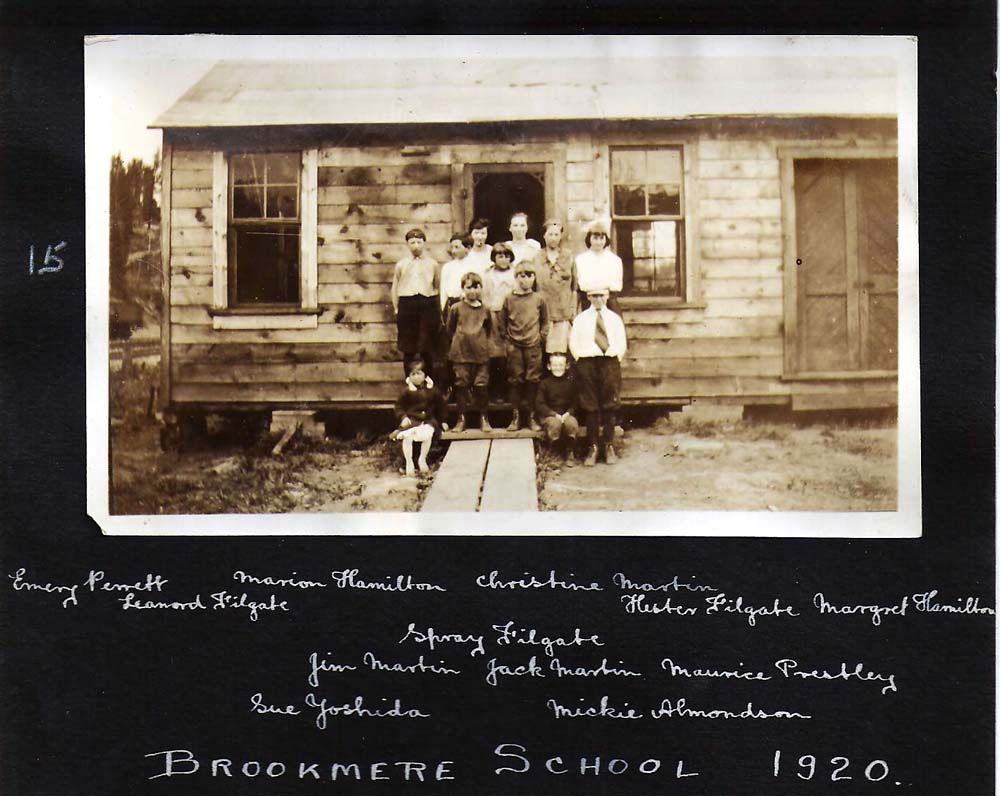 15
Emery Perrett Marion Hamilton Christine Martin
Leanord Filgate Hester Filgate Margret Hamilton
Spray Filgate
Jim Martin Jack Martin Maurice Prestley
Sue Yoshida Mickie Almondson
BROOKMERE SCHOOL 1920.